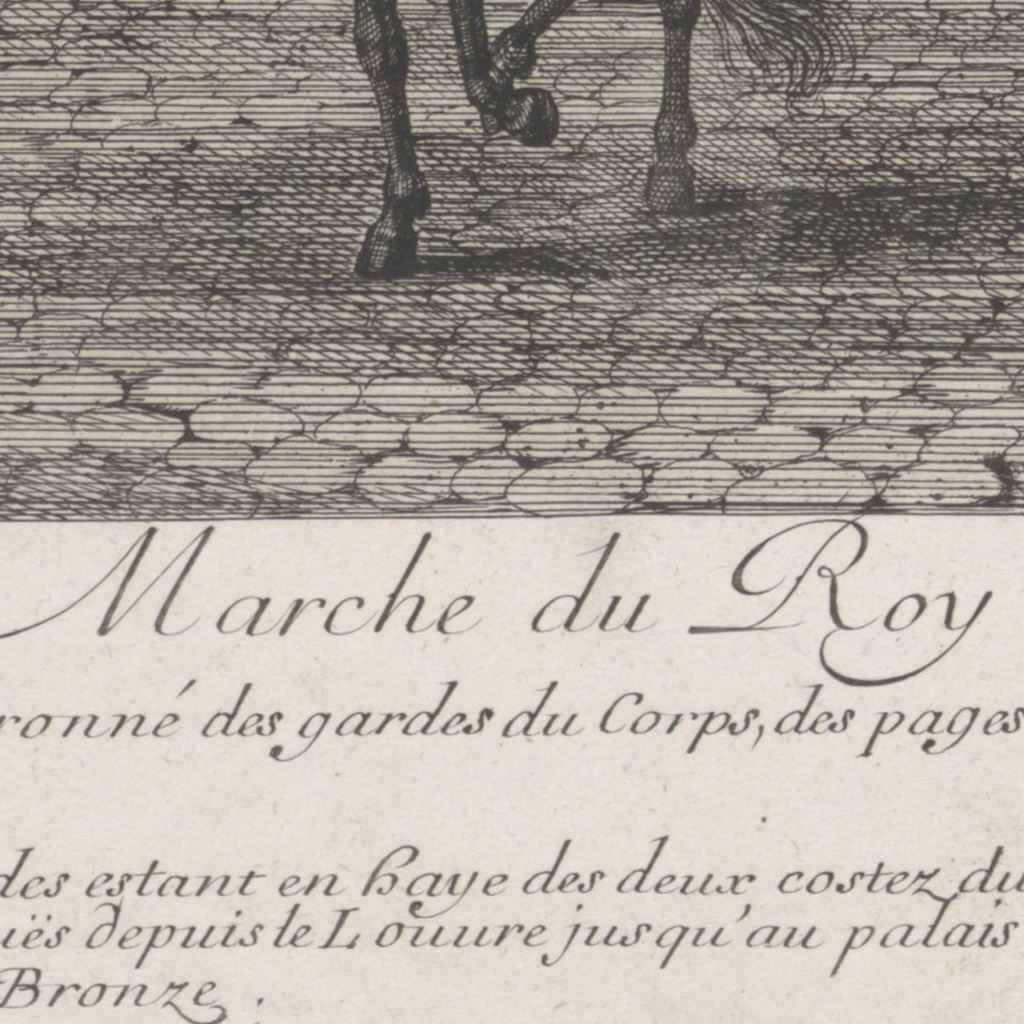 Marche du Roy
ronné des gardes du Corps, des pages
des estant en haye des deux costez du
uës depuis le Louure jusqu'au palais
Bronze.